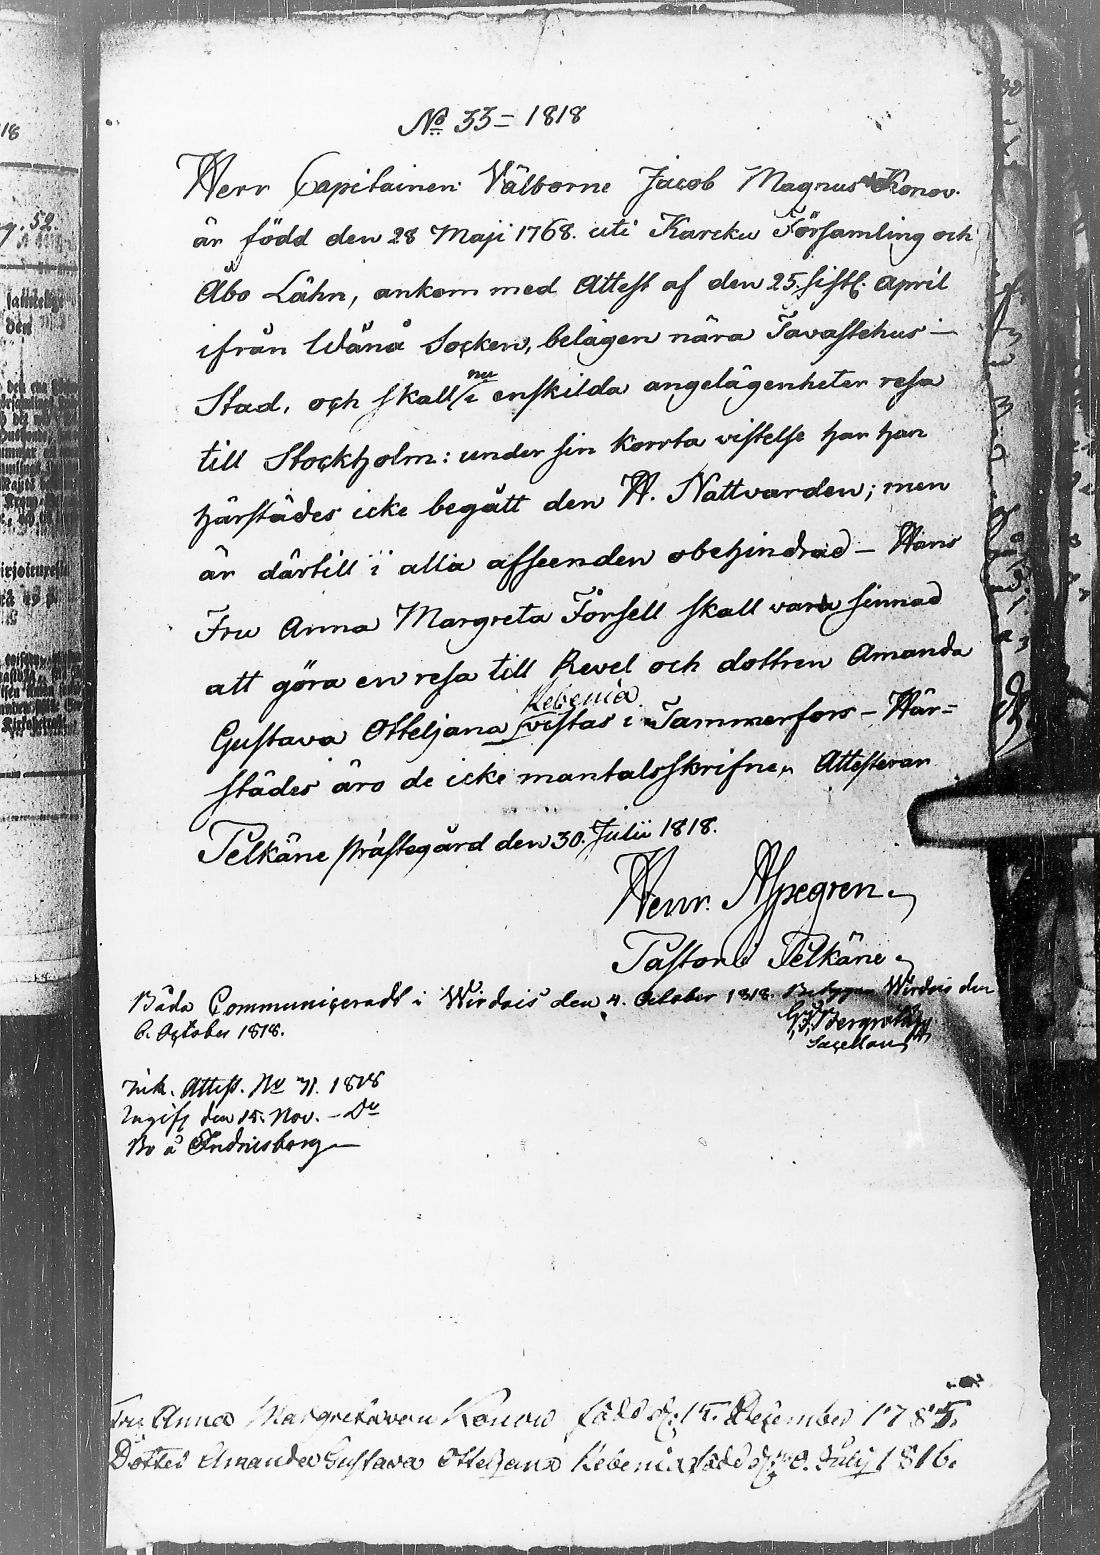 No 33 = 1818
Herr Capitainen Välborne Jacob Magnus Konov.
är född den 28 Maji 1768. uti Karcku Församling och
Åbo Lähn, ankom med Attest af den 25. sistl. April
ifrån Wånå Socken, belägen nära Tavastehus
Stad, och skall nu i enskilda angelägenheter resa
till Stockholm: under sin korrta vistelse har han
härstädes icke begått den H. Nattvarden; men
är därtill i alla afseenden obehindrad – Hans
Fru Anna Margreta Forsell skall vara sinnad
att göra en resa till Revel och dottren Amanda
Gustava Otteljana Rebenia vistas i Tammerfors – Här=
städes äro de icke mantalsskrifne, Attesterar
Pelkäne prästegård den 30. Julii 1818.
Henr. Aspegren
Pastor i Pelkäne
Båda Communicerade i Wirdois den 4. October 1818. Betygar Wirdois den
6. October 1818.
Bergroth
Sacellan
Ink. Attest. No 71. 1818
Ingift den 15. Nov. – Do
Bo å Indriesborg
Fru Anna Margreta von Konow född d. 15. December 1785.
Dotter Amanda Gustava Otteljana Rebenia född d. July 1816.
18
52